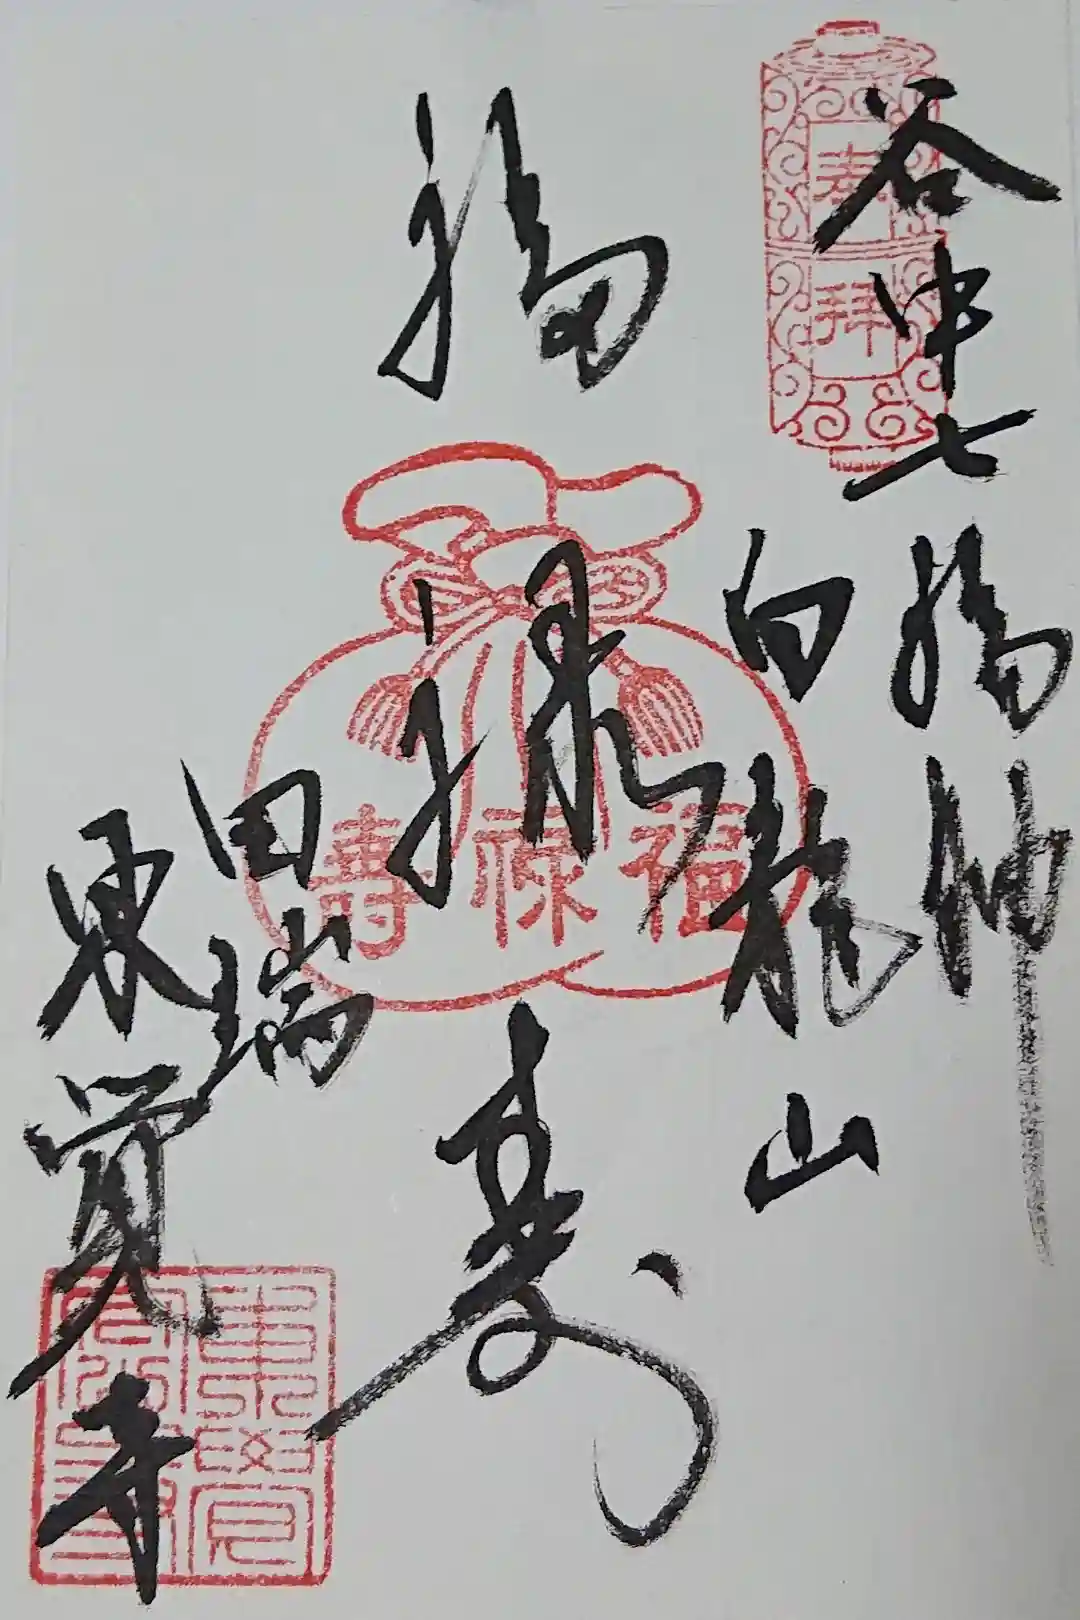 谷中七福神
奉拝
白龍山
福禄寿
福禄寿
田端
東覚寺